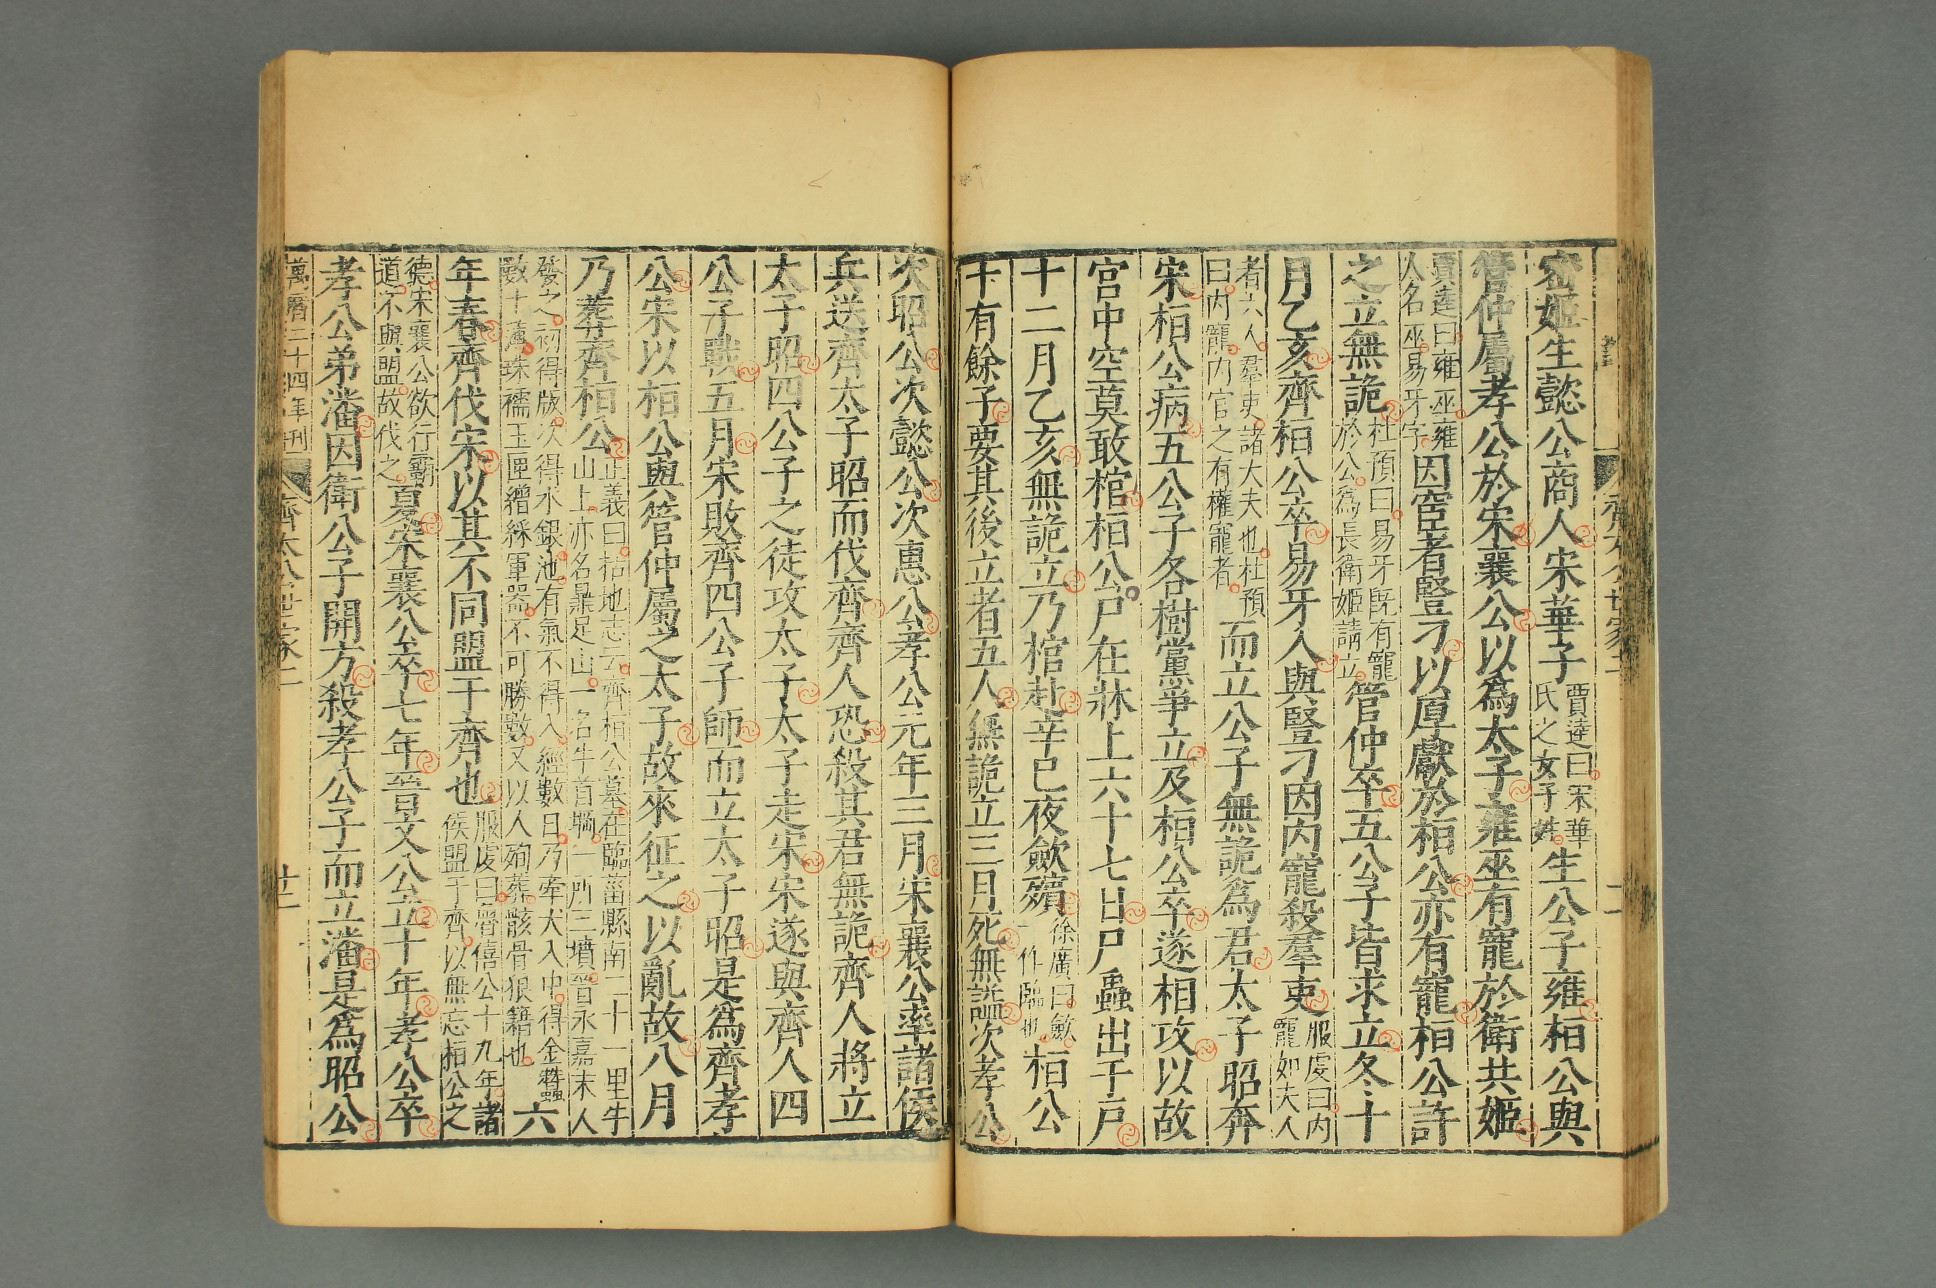 密姬生懿公商人宋華子賈逵曰宋華氏之女子姓生公子雍桓公與
管仲屬孝公於宋襄公以爲太子雍巫有寵於衛共姬
賈逵曰雍巫雍人名巫易牙字因宦者豎刁以厚獻於桓公亦有寵桓公許
之立無詭杜預曰易牙旣有寵於公爲長衛姬請立管仲卒五公子皆求立冬十
月乙亥齊桓公卒易牙入與豎刁因內寵殺羣吏服虔曰內寵如夫人
者六人羣吏諸大夫也杜預曰內寵內官之有權寵者而立公子無詭爲君太子昭奔
宋桓公病五公子各樹黨爭立及桓公卒遂相攻以故
宮中空莫敢棺桓公尸在牀上六十七日尸蟲出于戶
十二月乙亥無詭立乃棺赴辛巳夜斂殯徐廣曰斂一作臨也桓公
十有餘子要其後立者五人無詭立三月死無謚次孝公
次昭公次懿公次惠公孝公元年三月宋襄公率諸侯
兵送齊太子昭而伐齊齊人恐殺其君無詭齊人將立
太子昭四公子之徒攻太子太子走宋宋遂與齊人四
公子戰五月宋敗齊四公子師而立太子昭是爲齊孝
公宋以桓公與管仲屬之太子故來征之以亂故八月
乃葬齊桓公正義曰括地志云齊桓公墓在臨菑縣南二十一里牛山上亦名鼎足山一名牛首堈一所二墳晉永嘉末人
發之初得版次得水銀池有氣不得入經數日乃牽犬入中得金蠶數十薄珠襦玉匣繒綵軍器不可勝數又以人殉葬骸骨狼籍也六
年春齊伐宋以其不同盟于齊也服虔曰魯僖公十九年諸侯盟于齊以無忘桓公之
德宋襄公欲行霸道不與盟故伐之夏宋襄公卒七年晉文公立十年孝公卒
孝公弟潘因衛公子開方殺孝公子而立潘是爲昭公
萬曆二十四年刊 齊太公世家二